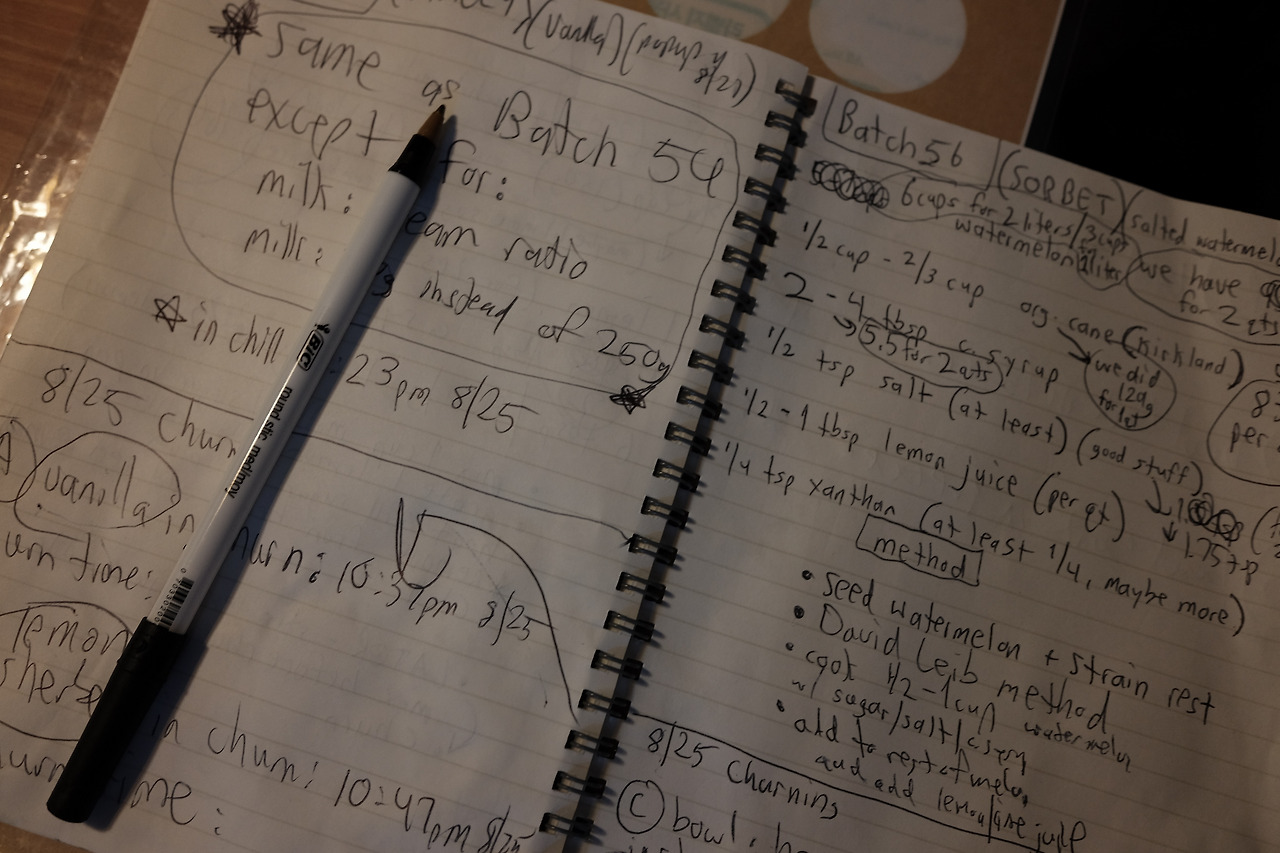 (vanilla) (popup 8/29)
Same as Batch 54
except for:
milk: eam ratio
milk: g instead of 250g
in chill : 23pm 8/25
8/25 churn
A) vanilla in churn: 10:37pm 8/25
urn time:
lemon
sherbe in churn: 10:47pm 8/25
hurn ime:
BIC round stic medium/moy
Batch 56 (SORBET) salted watermelo
6 cups for 2 liters/3 cups 1 liter we have
watermelon for 2 qts
1/2 cup - 2/3 cup org. cane (Kirkland)
we did 120g for 1qt
2 - 4 tbsp c. syrup
5.5 for 2 qts
1/2 tsp salt (at least) (good stuff)
1/2 - 1 tbsp lemon juice (per qt)
1/4 tsp xanthan (at least 1/4, maybe more)
1.75
per
method
• seed watermelon + strain rest
• David Leib method
• cook 1/2-1 cup watermelon
w/ sugar/salt/c syrp
• add to rest of melon
and add lemon/lime juice
8/25 Churning
C bowl